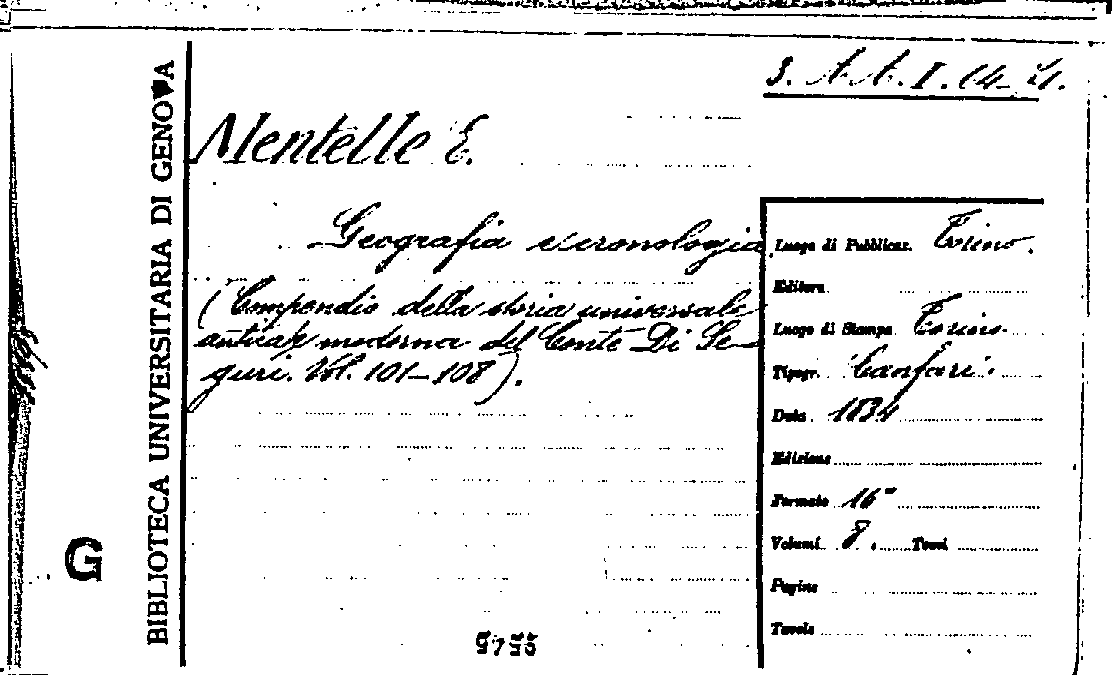 3. A. A. I. 14-21.
Mentelle E.
Geografia e cronologia
(Compendio della storia universale
antica e moderna del Conte Di Se-
guri. Vol. 101-108).
Luogo di Pubblicaz. Torino.
Editore
Luogo di Stampa Torino.
Tipogr. Canfari.
Data 1834
Edizione
Formato 16°
Volumi 8. Tomi
Pagine
Tavole
BIBLIOTECA UNIVERSITARIA DI GENOVA
G